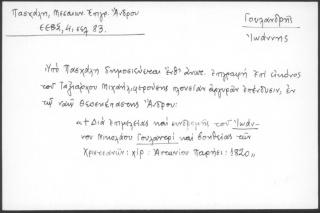 Πασχάλη, Μεσαιων. Ἐπιγρ. Ἄνδρου
ΕΕΒΣ, 4, σελ 83.
Γουλανδρῆς
Ἰωάννης
Ὑπὸ Πασχάλη δημοσιεύεται ἔνθ' ἀνωτ. ἐπιγραφὴ ἐπὶ εἰκόνος
τοῦ Ταξιάρχου Μιχαὴλ, φερούσης πλουσίαν ἀργυρᾶν ἐπένδυσιν, ἐν
τῷ ναῷ Θεοσκεπάστης Ἄνδρου:
«+ Διὰ ἐπιμελείας καὶ συνδρομῆς τοῦ Ἰωάν-
νου Νικολάου Γουλανδρὶ καὶ βοηθείας τῶν
Χριστιανῶν: χὶρ: Ἀντωνίου Παρήση: 1820»